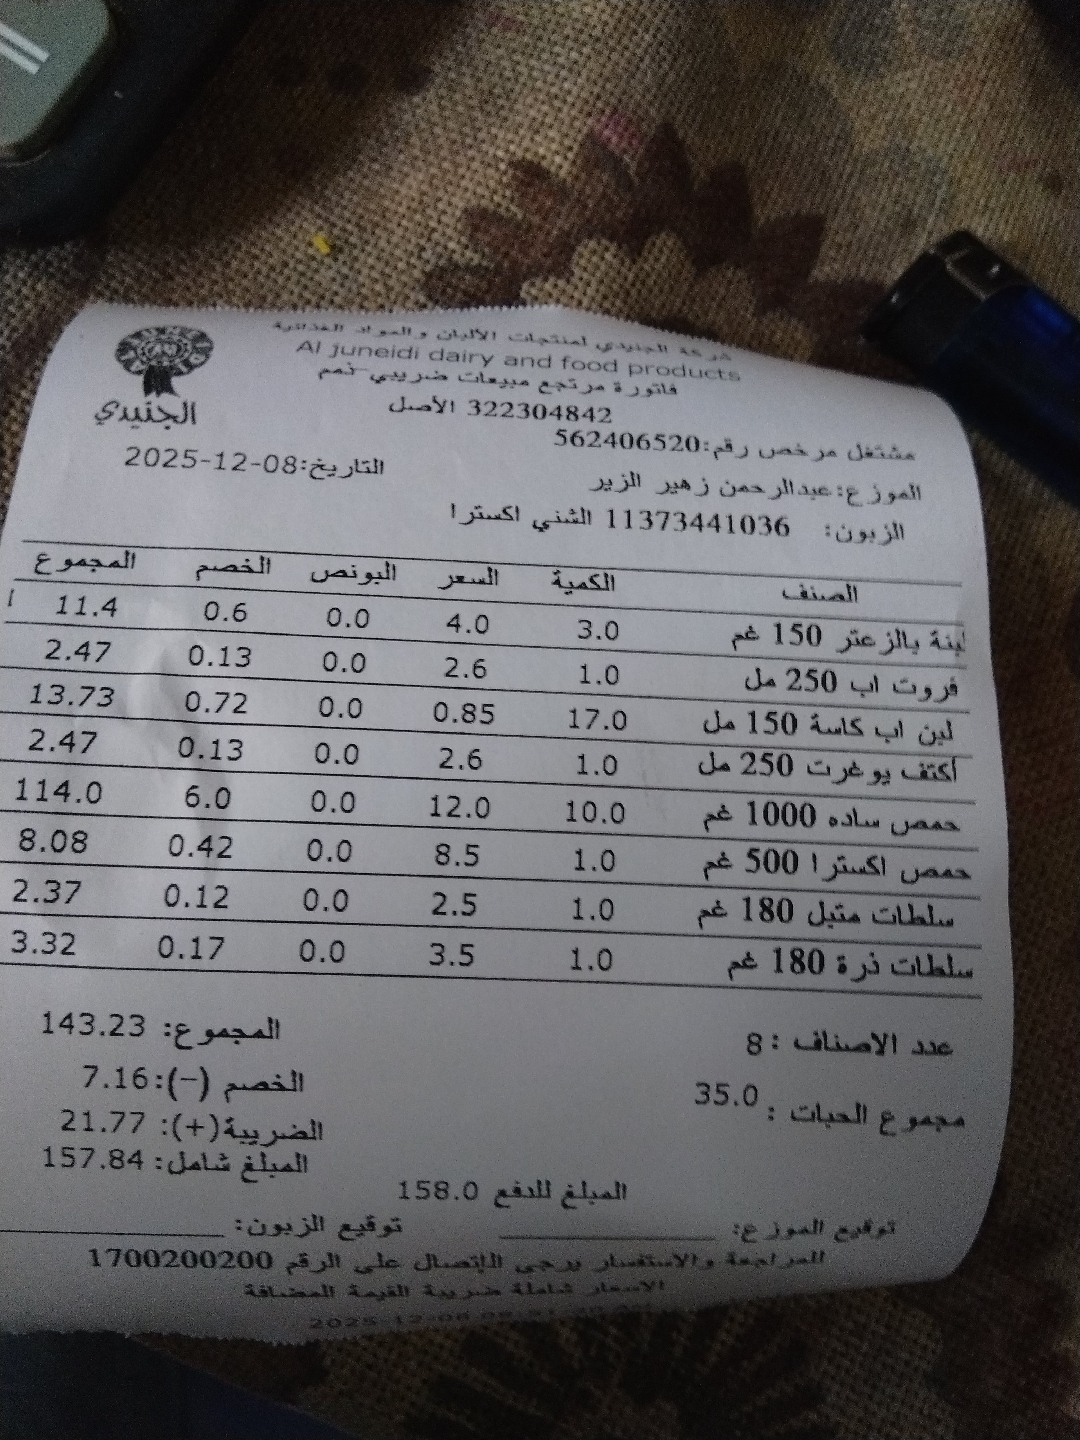 شركة الجنيدي لمنتجات الألبان والمواد الغذائية
Al juneidi dairy and food products
فاتورة مرتجع مبيعات ضريبي-ذمم
322304842 الأصل
الجنيدي
مشتغل مرخص رقم:562406520
التاريخ:2025-12-08
الموزع:عبدالرحمن زهير الزير
الزبون: 11373441036 الشني اكسترا
الصنف الكمية السعر البونص الخصم المجموع
لبنة بالزعتر 150 غم 3.0 4.0 0.0 0.6 11.4
فروت اب 250 مل 1.0 2.6 0.0 0.13 2.47
لبن اب كاسة 150 مل 17.0 0.85 0.0 0.72 13.73
أكتف يوغرت 250 مل 1.0 2.6 0.0 0.13 2.47
حمص ساده 1000 غم 10.0 12.0 0.0 6.0 114.0
حمص اكسترا 500 غم 1.0 8.5 0.0 0.42 8.08
سلطات متبل 180 غم 1.0 2.5 0.0 0.12 2.37
سلطات ذرة 180 غم 1.0 3.5 0.0 0.17 3.32
عدد الاصناف : 8
المجموع: 143.23
مجموع الحبات : 35.0
الخصم (-):7.16
الضريبة(+): 21.77
المبلغ شامل: 157.84
المبلغ للدفع 158.0
توقيع الموزع: توقيع الزبون:
للمراجعة والاستفسار يرجى الإتصال على الرقم 1700200200
الاسعار شاملة ضريبة القيمة المضافة
2025-12-08